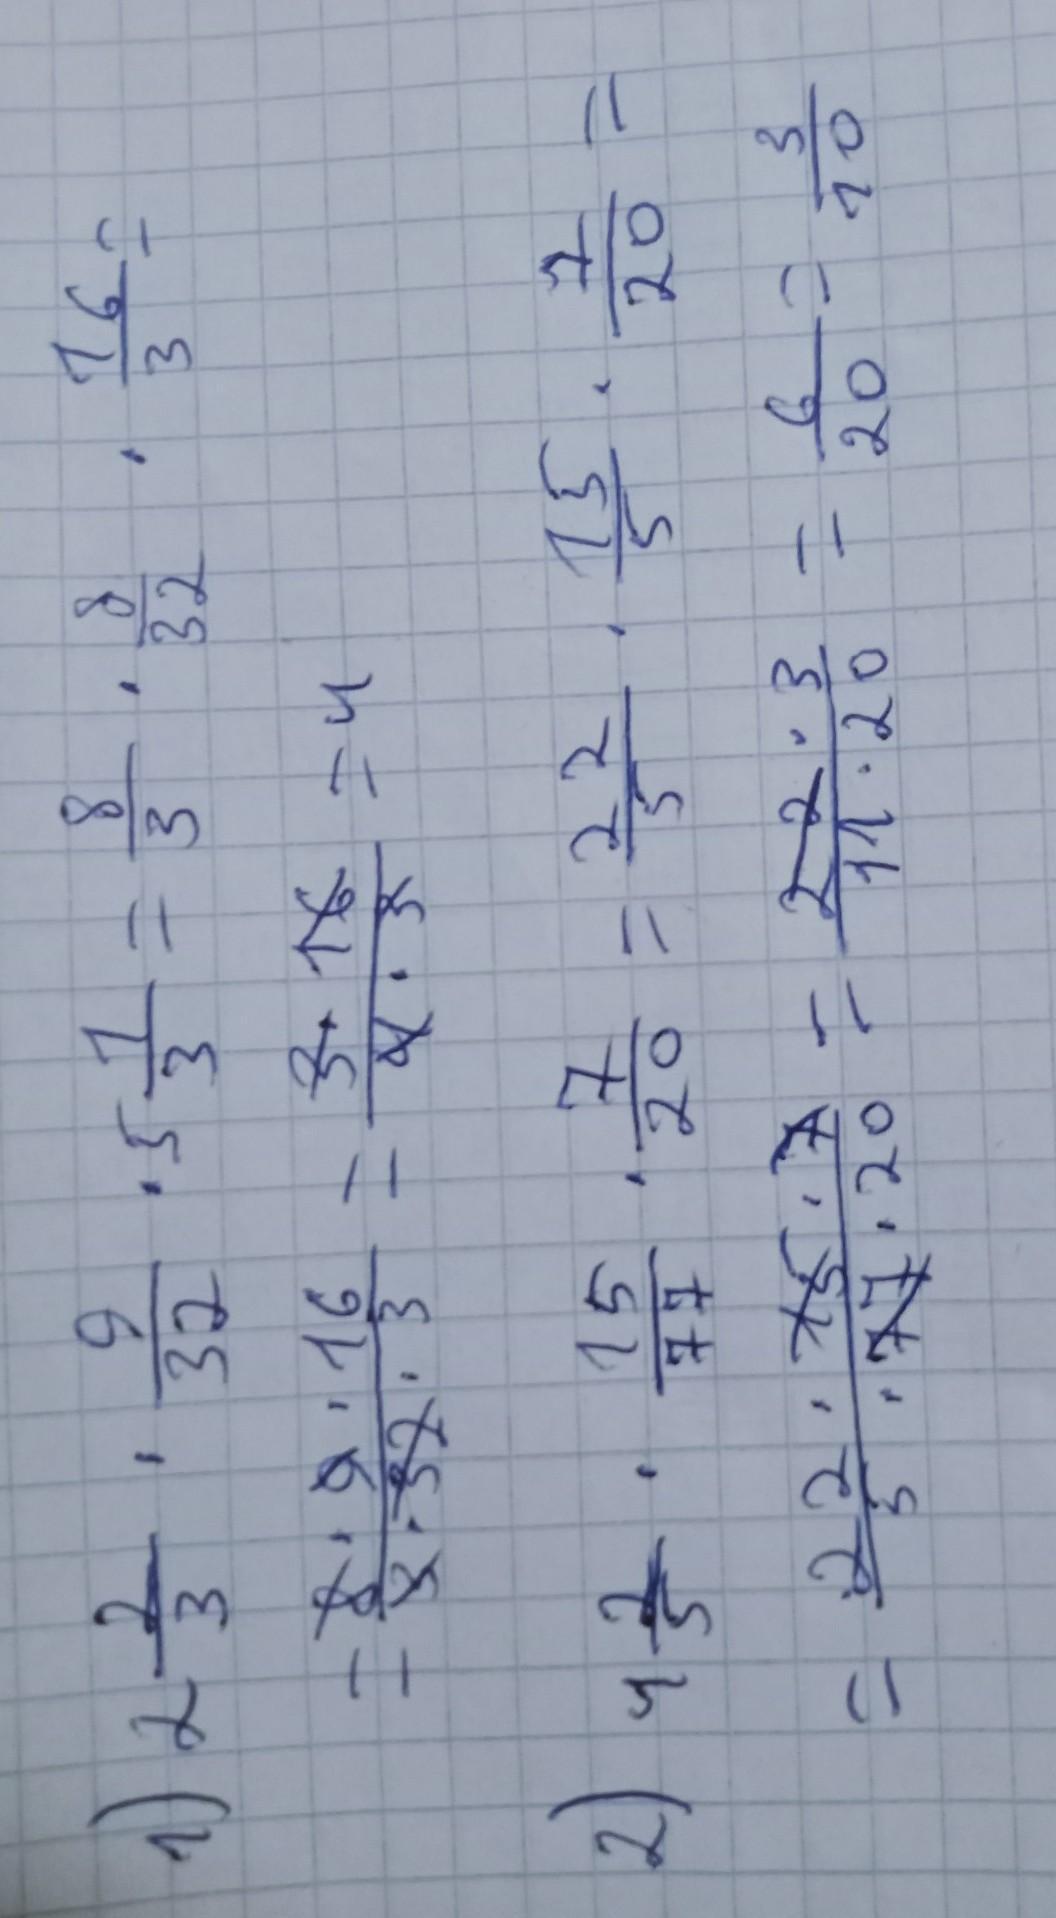 1) 2 2/3 · 9/32 · 5 1/3 = 8/3 · 8/32 · 16/3 =
= 8 · 9 · 16 / 3 · 32 · 3 = 3 · 16 / 4 · 3 = 4
2) 4 2/5 · 15/77 · 7/20 = 22/5 · 15/5 · 7/20 =
= 22 · 15 · 7 / 5 · 77 · 20 = 22 · 3 / 11 · 20 = 6/20 = 3/10